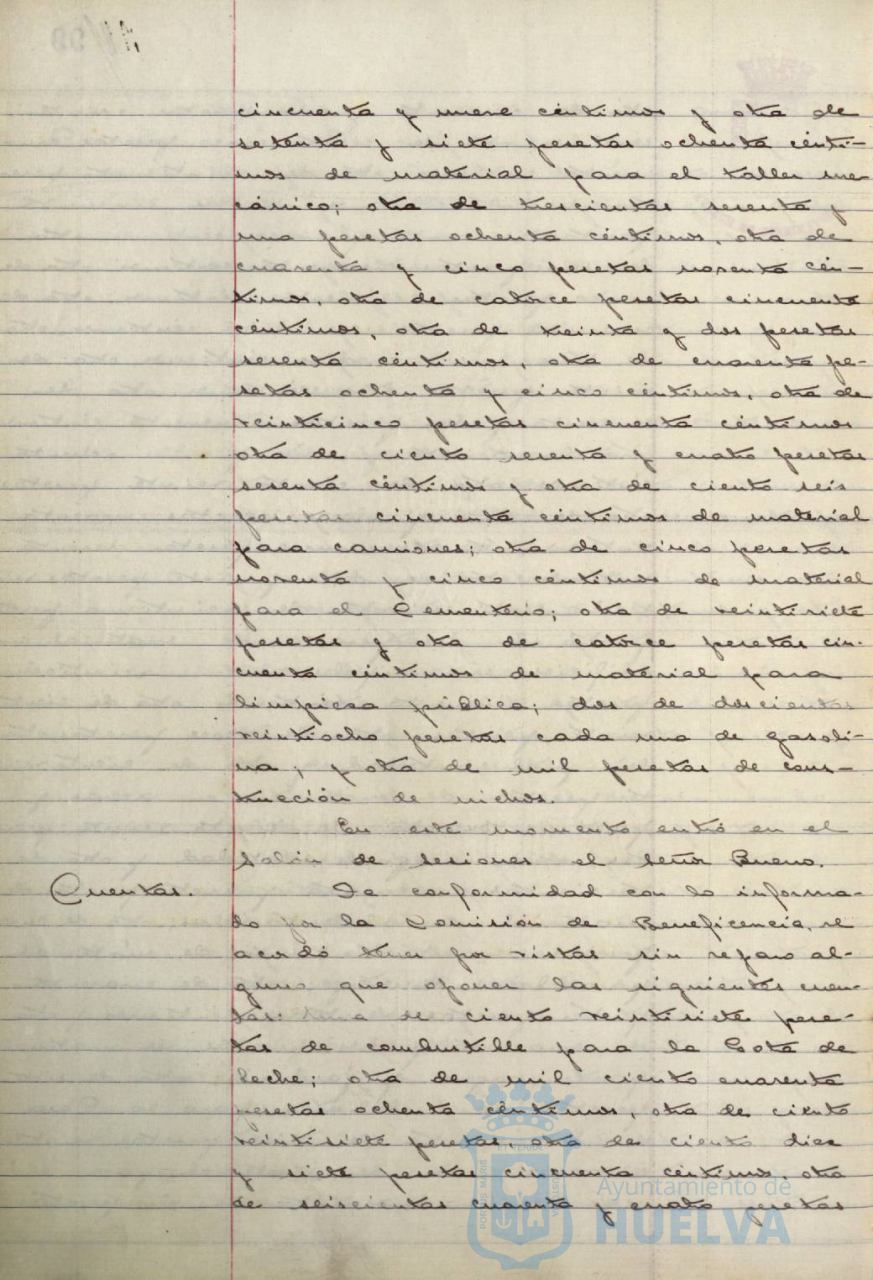 cincuenta y nueve céntimos y otra de
setenta y siete pesetas ochenta cénti-
mos de material para el taller me-
cánico; otra de trescientas sesenta y
una pesetas ochenta céntimos, otra de
cuarenta y cinco pesetas noventa cén-
timos, otra de catorce pesetas cincuenta
céntimos, otra de treinta y dos pesetas
sesenta céntimos, otra de cuarenta pe-
setas ochenta y cinco céntimos, otra de
veinticinco pesetas cincuenta céntimos
otra de ciento sesenta y cuatro pesetas
sesenta céntimos y otra de ciento seis
pesetas cincuenta céntimos de material
para camiones; otra de cinco pesetas
noventa y cinco céntimos de material
para el Cementerio; otra de veintisiete
pesetas y otra de catorce pesetas cin-
cuenta céntimos de material para
limpiesa pública; dos de doscientas
veintiocho pesetas cada una de gasoli-
na; y otra de mil pesetas de cons-
trucción de nichos.
En este momento entró en el
Salón de sesiones el señor Bueno.
Cuentas.
De conformidad con lo informa-
do por la Comisión de Beneficencia, se
acordó tener por vistas sin reparo al-
guno que oponer las siguientes cuen-
tas: una de ciento veintisiete pese-
tas de combustible para la Gota de
Leche; otra de mil ciento cuarenta
pesetas ochenta céntimos, otra de ciento
veintisiete pesetas, otra de ciento diez
y siete pesetas cincuenta céntimos, otra
de seiscientas cuarenta y cuatro pesetas
Ayuntamiento de
HUELVA